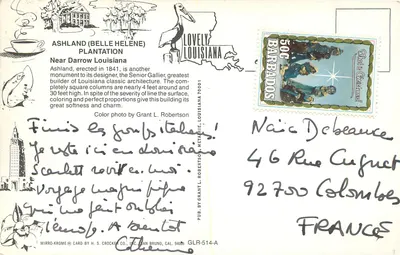 ASHLAND (BELLE HELENE)
PLANTATION
Near Darrow Louisiana
Ashland, erected in 1841, is another
monument to its designer, the Senior Gallier, greatest
builder of Louisiana classic architecture. The com-
pletely square columns are nearly 4 feet around and
30 feet high. In spite of the severity of line the surface,
coloring and perfect proportions give this building its
great softness and charm.
Color photo by Grant L. Robertson
LOVELY
LOUISIANA
PUB. BY GRANT L. ROBERTSON, METAIRIE, LOUISIANA 70001
50c
BARBADOS
Finis les groupes italiens!
Je suis ici en Louisiane
Scarlett
voyage magnifique
qui me fait oublier
le temps. A bientôt
46 Rue Cuguet
92700 Colombes
FRANCE
MIRRO-KROME ® CARD BY H. S. CROCKER CO., INC., SAN BRUNO, CAL. 94066
GLR-514-A